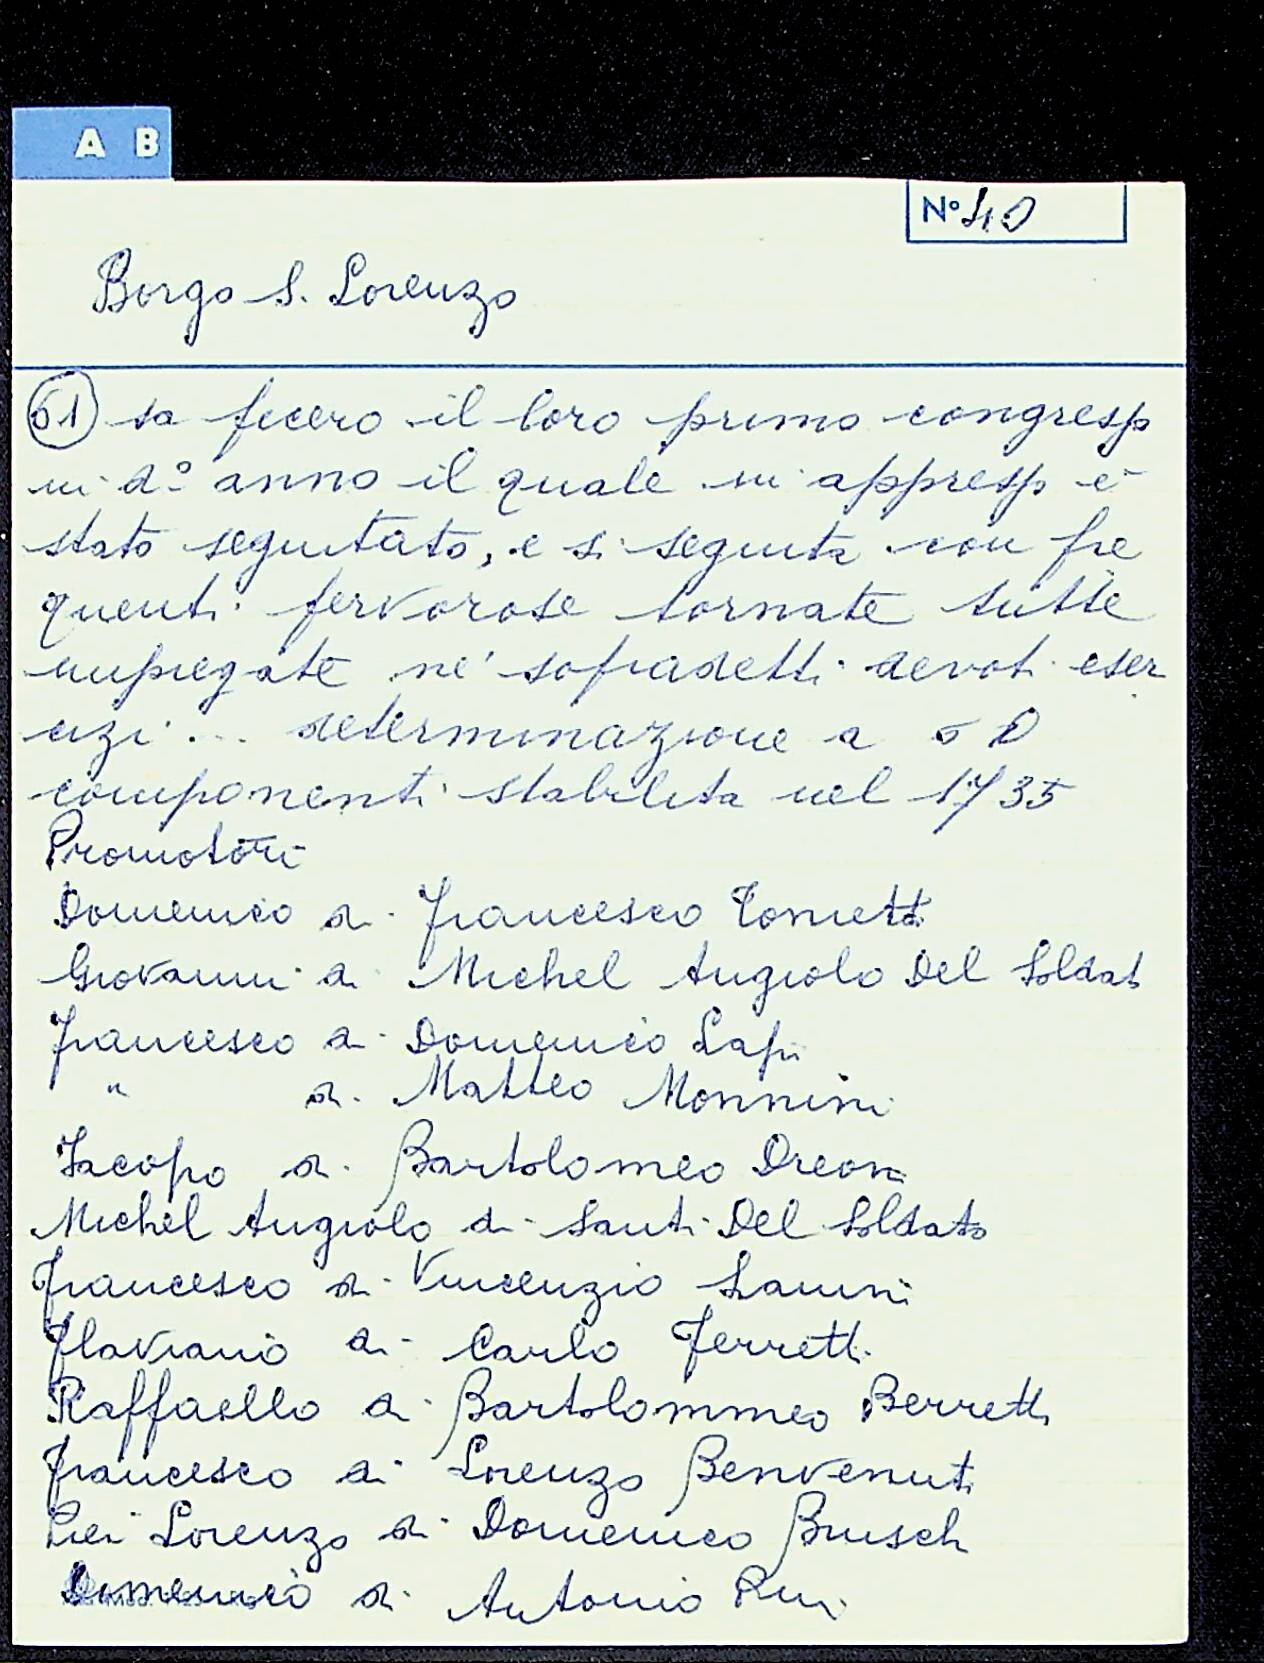 A B
N° 40
Borgo S. Lorenzo
61 sa fecero il loro primo congresso
in d° anno il quale in appresso è
stato seguitato, e si seguita con fre
quenti fervorose tornate tutte
impiegate ne' sopradetti devoti eser
cizi ... determinazione a 50
componenti stabilita nel 1735
Promotori
Domenico di Francesco Tonietti
Giovanni di Michel Angiolo Del Soldat
Francesco di Domenico Lapi
" di Matteo Monnini
Iacopo di Bartolomeo Dreoni
Michel Angiolo di Santi Del Soldato
Francesco di Vincenzio
Flaviano di Carlo Ferretti
Raffaello di Bartolommeo Berretti
Francesco di Lorenzo Benvenuti
Pier Lorenzo di Domenico Bruschi
Domenico di Antonio